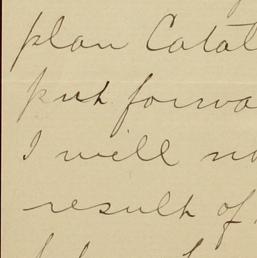 plan Catal
put forwa
I will no
result of